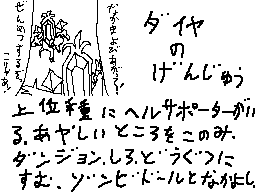 ダイヤ
の
げんじゅう
ぜんめつするぞ
上位種にヘルサポーターがい
る。あやしいところをこのみ、
ダンジョン、しろ、どうくつに
すむ。ゾンビドールとなかよし